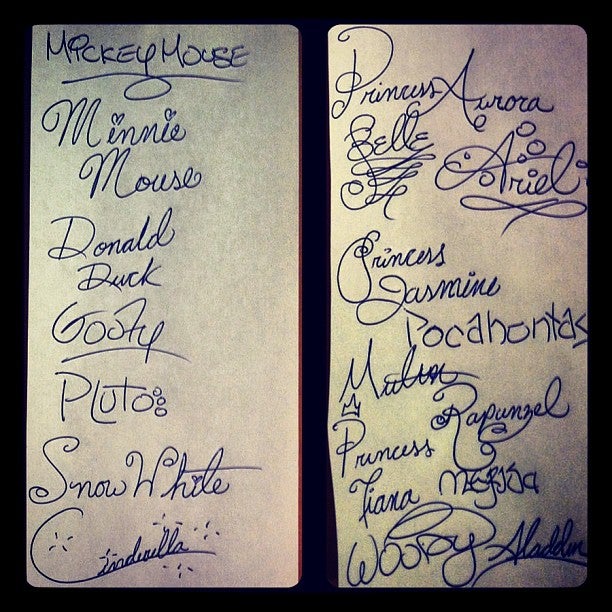 Mickey Mouse
Minnie
Mouse
Donald
Duck
Goofy
Pluto
Snow White
Cinderella
Princess Aurora
Belle
Ariel
Princess
Jasmine
Pocahontas
Mulan
Rapunzel
Princess
Tiana
Woody Aladdin